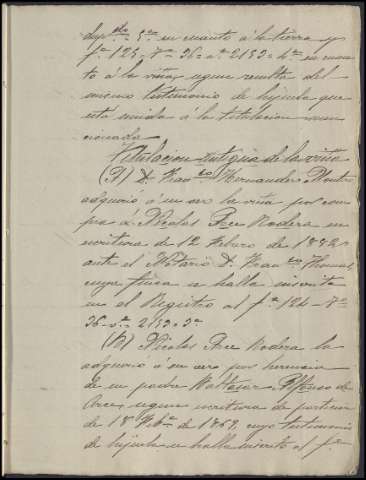 dupdo 5ª en cuanto á la tierra y
fº 125, tº 36 nº 2133 4ª en cuan
to á la viña, segun resulta del
mismo testimonio de hijuela que
está unida á la titulacion men
cionada
Titulacion antigua de la viña
(A) D. Franco Hernandez Montero
adquirió á su vez la viña por com
pra á Nicolas Arce Rodera en
escritura de 12 Febrero de 1882
ante el Notario D. Franco
cuya finca se halla inscrita
en el Registro al fº 124 tº
36 nº 2133 3ª
(B) Nicolas Arce Rodera la
adquirió á su vez por herencia
de su padre Baltasar Alfonso de
Arce, segun escritura de particion
de 18 Febº de 1869, cuyo testimonio
de hijuela se halla inscrito al fº